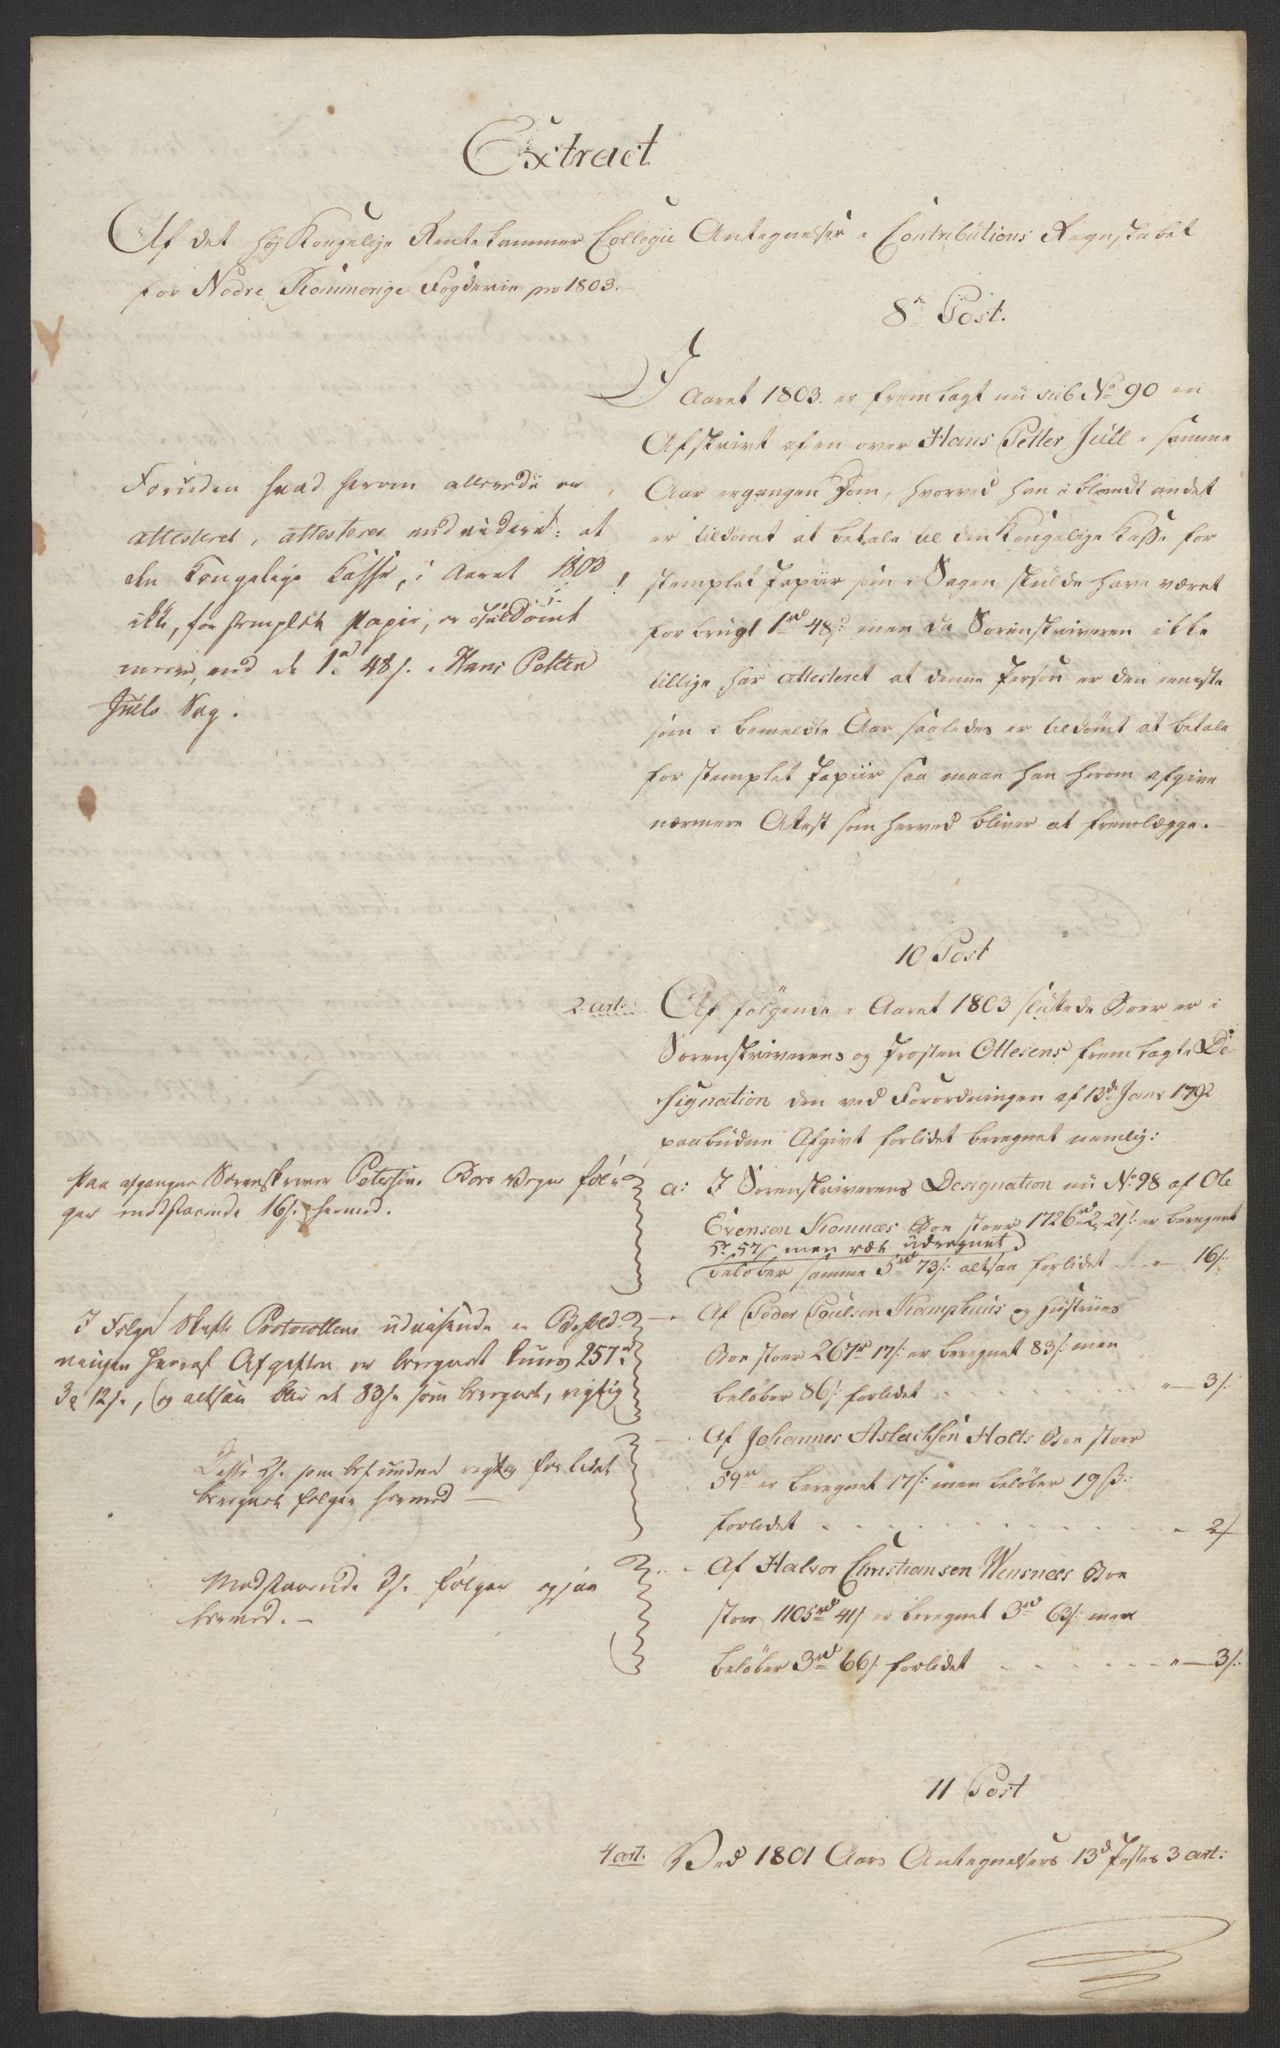 Extract
Af det høj Kongelige Rentekammer Collegii Antegnelser i Contributions Regnskabet
for Nedre Rommerige Fogderie pro 1803.
8de Post.
I Aaret 1803. er fremlagt nu sub No 90 en
Afskrivt af en over Hans Petter Juell i samme
Aar ergangen Dom, hvorved han i blandt andet
er tildømt at betale til den Kongelige Kasse for
stemplet Papiir som i Sagen skulde have været
forbrugt 1rd 48s: men da Sorenskriveren ikke
tillige har attesteret at denne Person er den eneste
som i bemeldte Aar saaledes er tildømt at betale
for stemplet Papiir saa maae han herom afgive
nærmere Attest som herved bliver at fremlægge.
Foruden hvad herom allerede er
attesteret, attesteres endvidere: at
den Kongelige Casse, i Aaret 1803
ikke, for stemplet Papir, er tildømt
meere, end de 1rd 48s. i Hans Petter
Juels Sag.
10 Post
2. art: Af følgende i Aaret 1803 sluttede Boer er i
Sorenskriverens og Provsten Ottesens fremlagte De-
signation den ved Forordningen af 13de Janr 1792
paabudne Afgivt forlidet beregnet nemlig:
a: I Sorenskriverens Designation nu No 98 af Ole
Evensen Romnæs Boe stoer 1726rd 2. 21s. er beregnet
5r 57s men ræt udregnet
beløber samme 5rd 73s. altsaa forlidet " 16s.
Paa afgangne Sorenskriver Petersens Boes Vegne føl-
ger modstaaende 16s. hermed.
Af Peder Poulsen Kamphuus og Hustrues
Boe stoer 267r 17s. er beregnet 83s. men
beløber 86s. forlidet " 3s.
I Følge Skifte Protocollens udvisende
hvoraf Afgivten er beregnet kuns 257rd
3q 12s., og altsaa blev de 83s. som beregnet, rigtig
Af Johannes Aslachsen Holts Boe stoer
59rd er beregnet 17s. men beløber 19s:
forlidet " 2s
Disse 2s. som befindes rigtig forlidet
beregnet følger hermed
Af Halvor Christiansen Wensnæs Boe
stoer 1105rd 41s er beregnet 3rd 63s. men
beløber 3rd 66s. forlidet " 3s.
Modstaaende 3s. følger ogsaa
hermed.
11 Post
4 art. Ved 1801 Aars Antegnelsers 13d Postes 3 art: